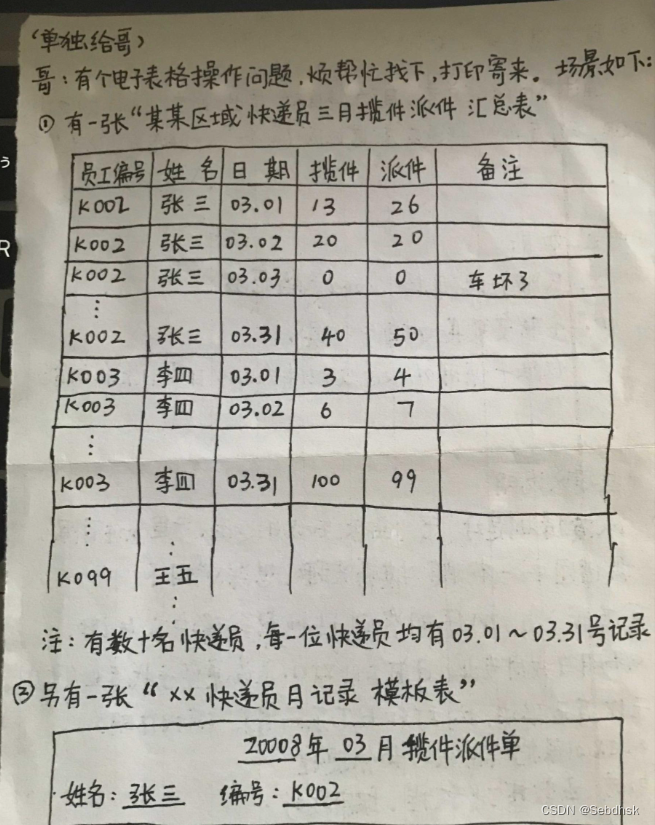 (单独给哥)
哥:有个电子表格操作问题,烦帮忙找下,打印寄来。场景如下:
① 有一张“某某区域快递员三月揽件派件 汇总表”
员工编号 姓 名 日 期 揽件 派件 备注
K002 张三 03.01 13 26
K002 张三 03.02 20 20
K002 张三 03.03 0 0 车坏了
⋮
K002 张三 03.31 40 50
K003 李四 03.01 3 4
K003 李四 03.02 6 7
⋮
K003 李四 03.31 100 99
⋮ ⋮
K099 王五
⋮
注:有数十名快递员,每一位快递员均有03.01~03.31号记录
② 另有一张“××快递员月记录 模板表”
20008年 03 月 揽件派件单
姓名:张三 编号:K002
CSDN @Sebdhsk
R